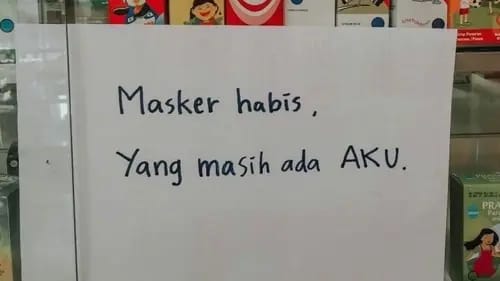 Masker habis,
Yang masih ada AKU.